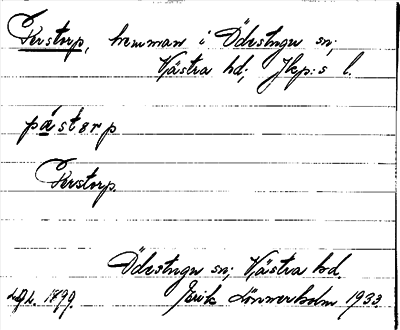 Perstorp, hemman i Ödestugu sn;
Västra hd; Jkp:s l.
pæstɵrp
Perstorp.
Ödestugu sn; Västra hd.
1899. Erik Lönnerholm 1933